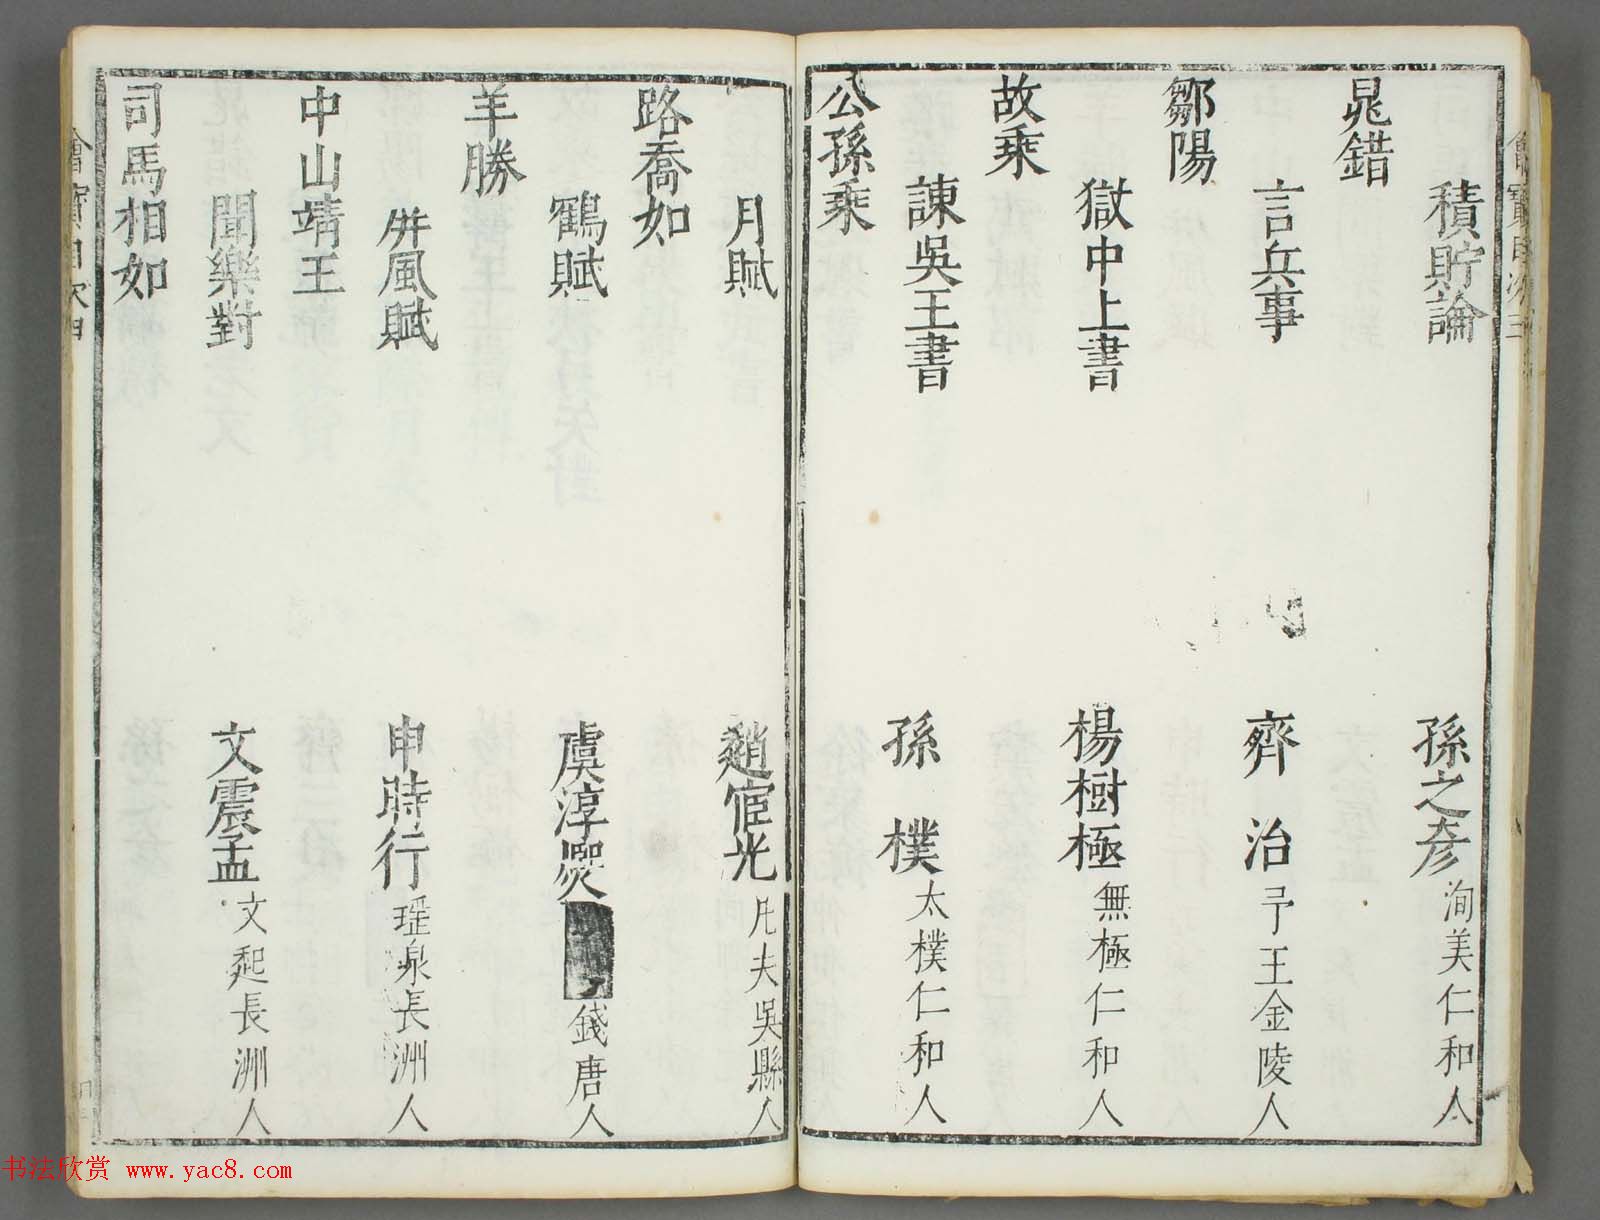 積貯論 孫之彥 洵美仁和人
晁錯
言兵事 齊治 予王金陵人
鄒陽
獄中上書 楊樹極 無極仁和人
故乘
諌吳王書 孫樸 太樸仁和人
公孫乘
月賦 趙宧光 凡夫吳縣人
路喬如
鶴賦 虞淳熙 錢唐人
羊勝
屏風賦 申時行 瑶泉長洲人
中山靖王
聞樂對 文震孟 文起長洲人
司馬相如
書法欣赏 www.yac8.com